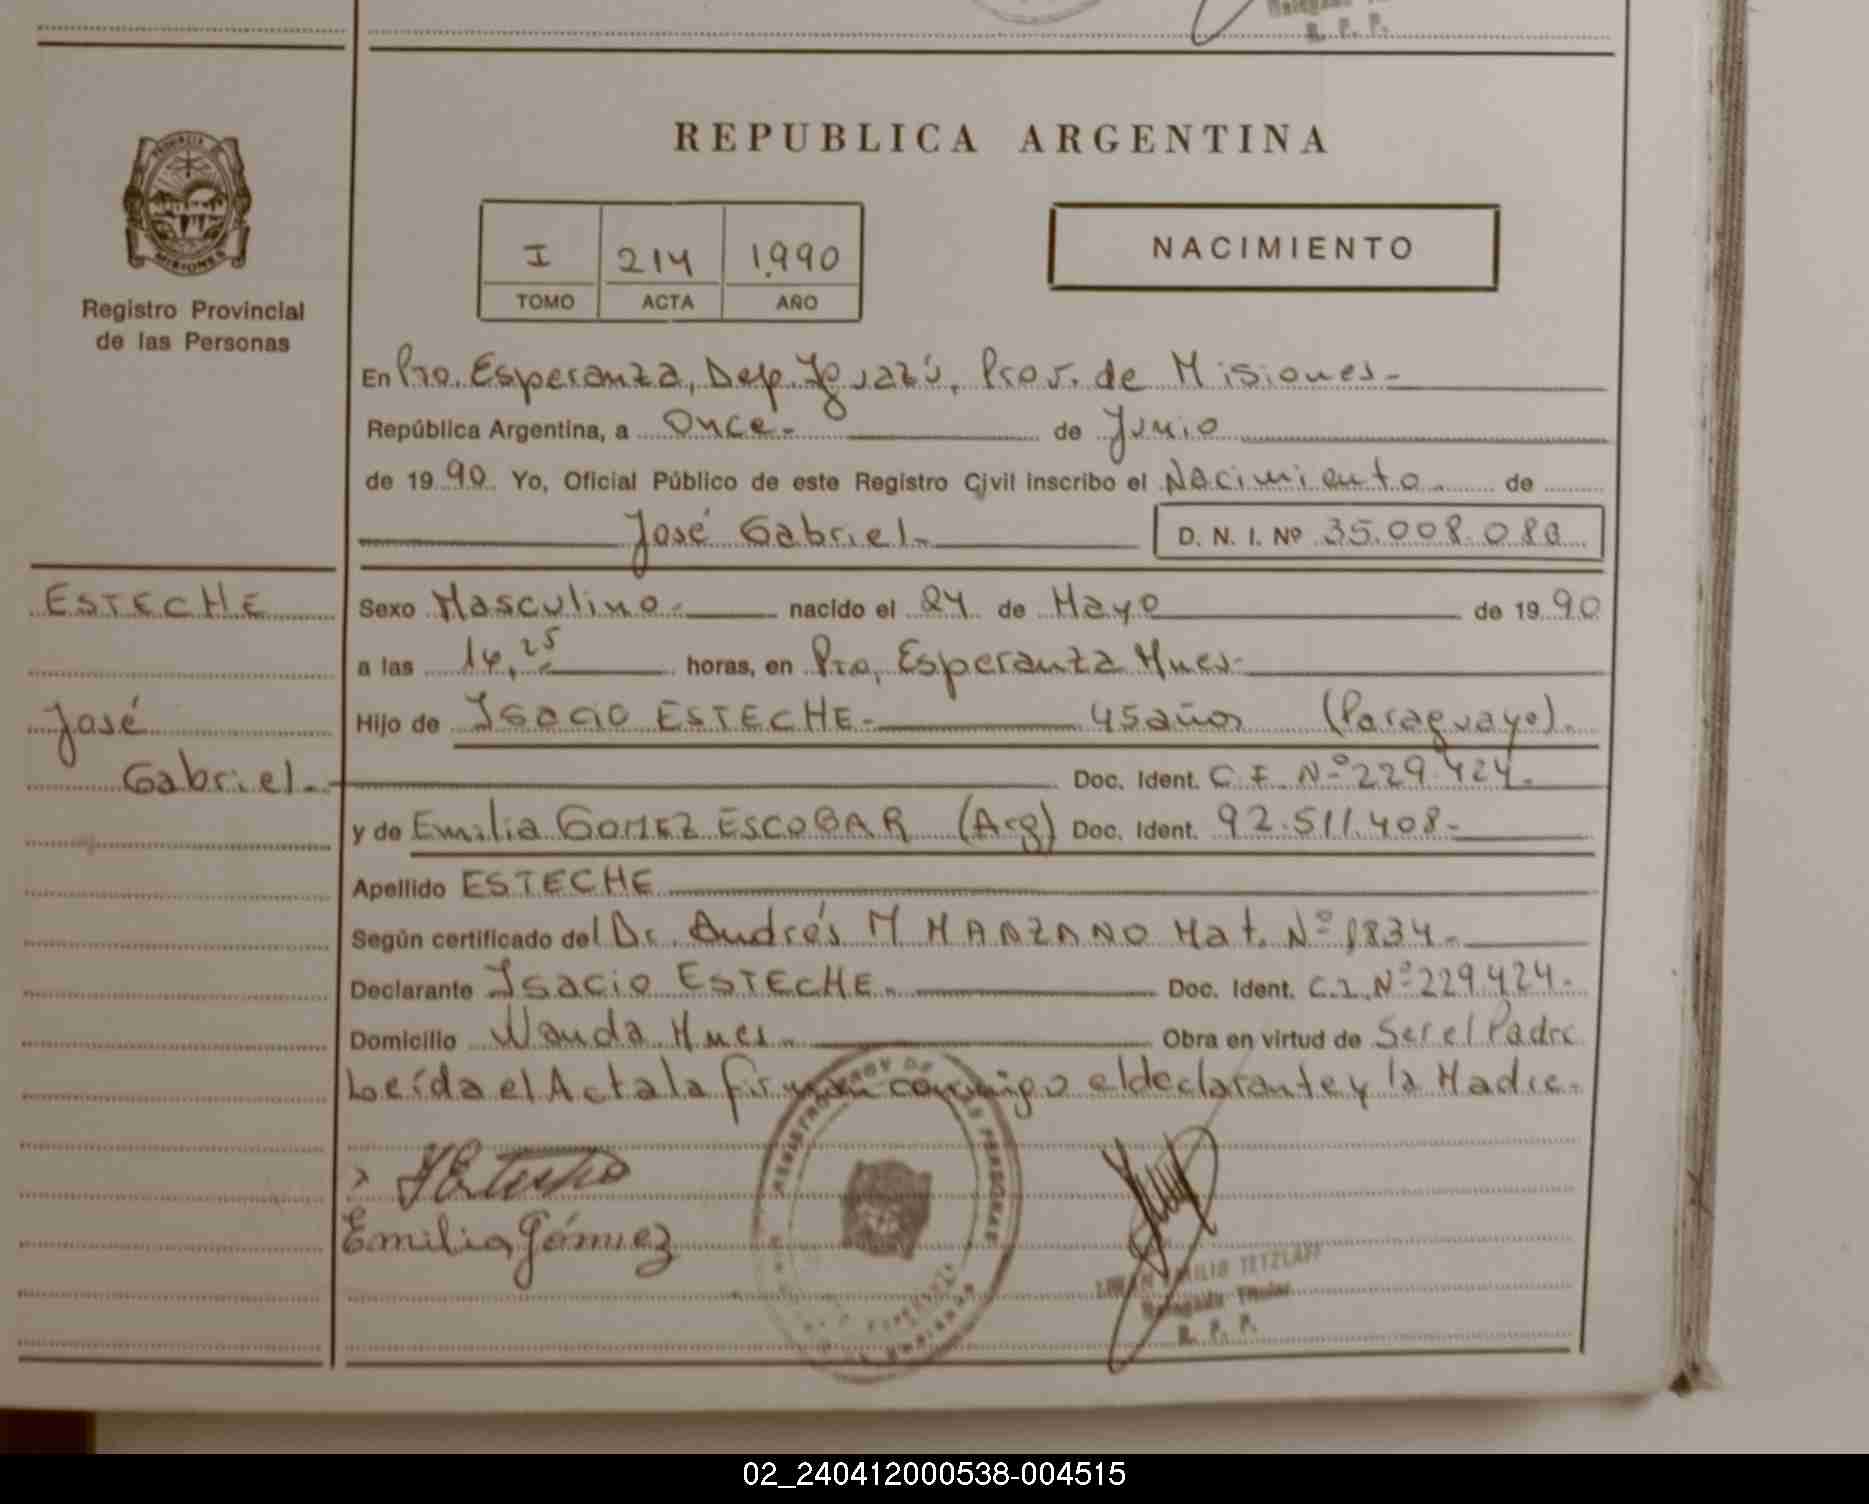 R. P. P.
PROVINCIA
MISIONES
Registro Provincial
de las Personas
REPUBLICA ARGENTINA
I 214 1.990
TOMO ACTA AÑO
NACIMIENTO
En Pto. Esperanza, Dep. Iguazú, Prov. de Misiones-
República Argentina, a Once- de Junio
de 19 90 Yo, Oficial Público de este Registro Civil inscribo el Nacimiento de
José Gabriel- D. N. I. Nº 35.008.080
ESTECHE
José
Gabriel.-
Sexo Masculino.- nacido el 24 de Mayo de 19 90
a las 14,25 horas, en Pto, Esperanza Mnes-
Hijo de Isacio ESTECHE- 45 años (Paraguayo).
Doc. Ident. C.I. Nº 229.424.
y de Emilia GOMEZ ESCOBAR (Arg) Doc. Ident. 92.511.408-
Apellido ESTECHE
Según certificado del Dr. Andrés M MANZANO Mat. Nº 1834-
Declarante Isacio ESTECHE. Doc. Ident. C.I. Nº 229.424.
Domicilio Wanda Mnes. Obra en virtud de Ser el Padre
Leída el Acta la firman conmigo el declarante y la Madre.
Emilia Gómez
TETZLAFF
Delegado Titular
R. P. P.
02_240412000538-004515